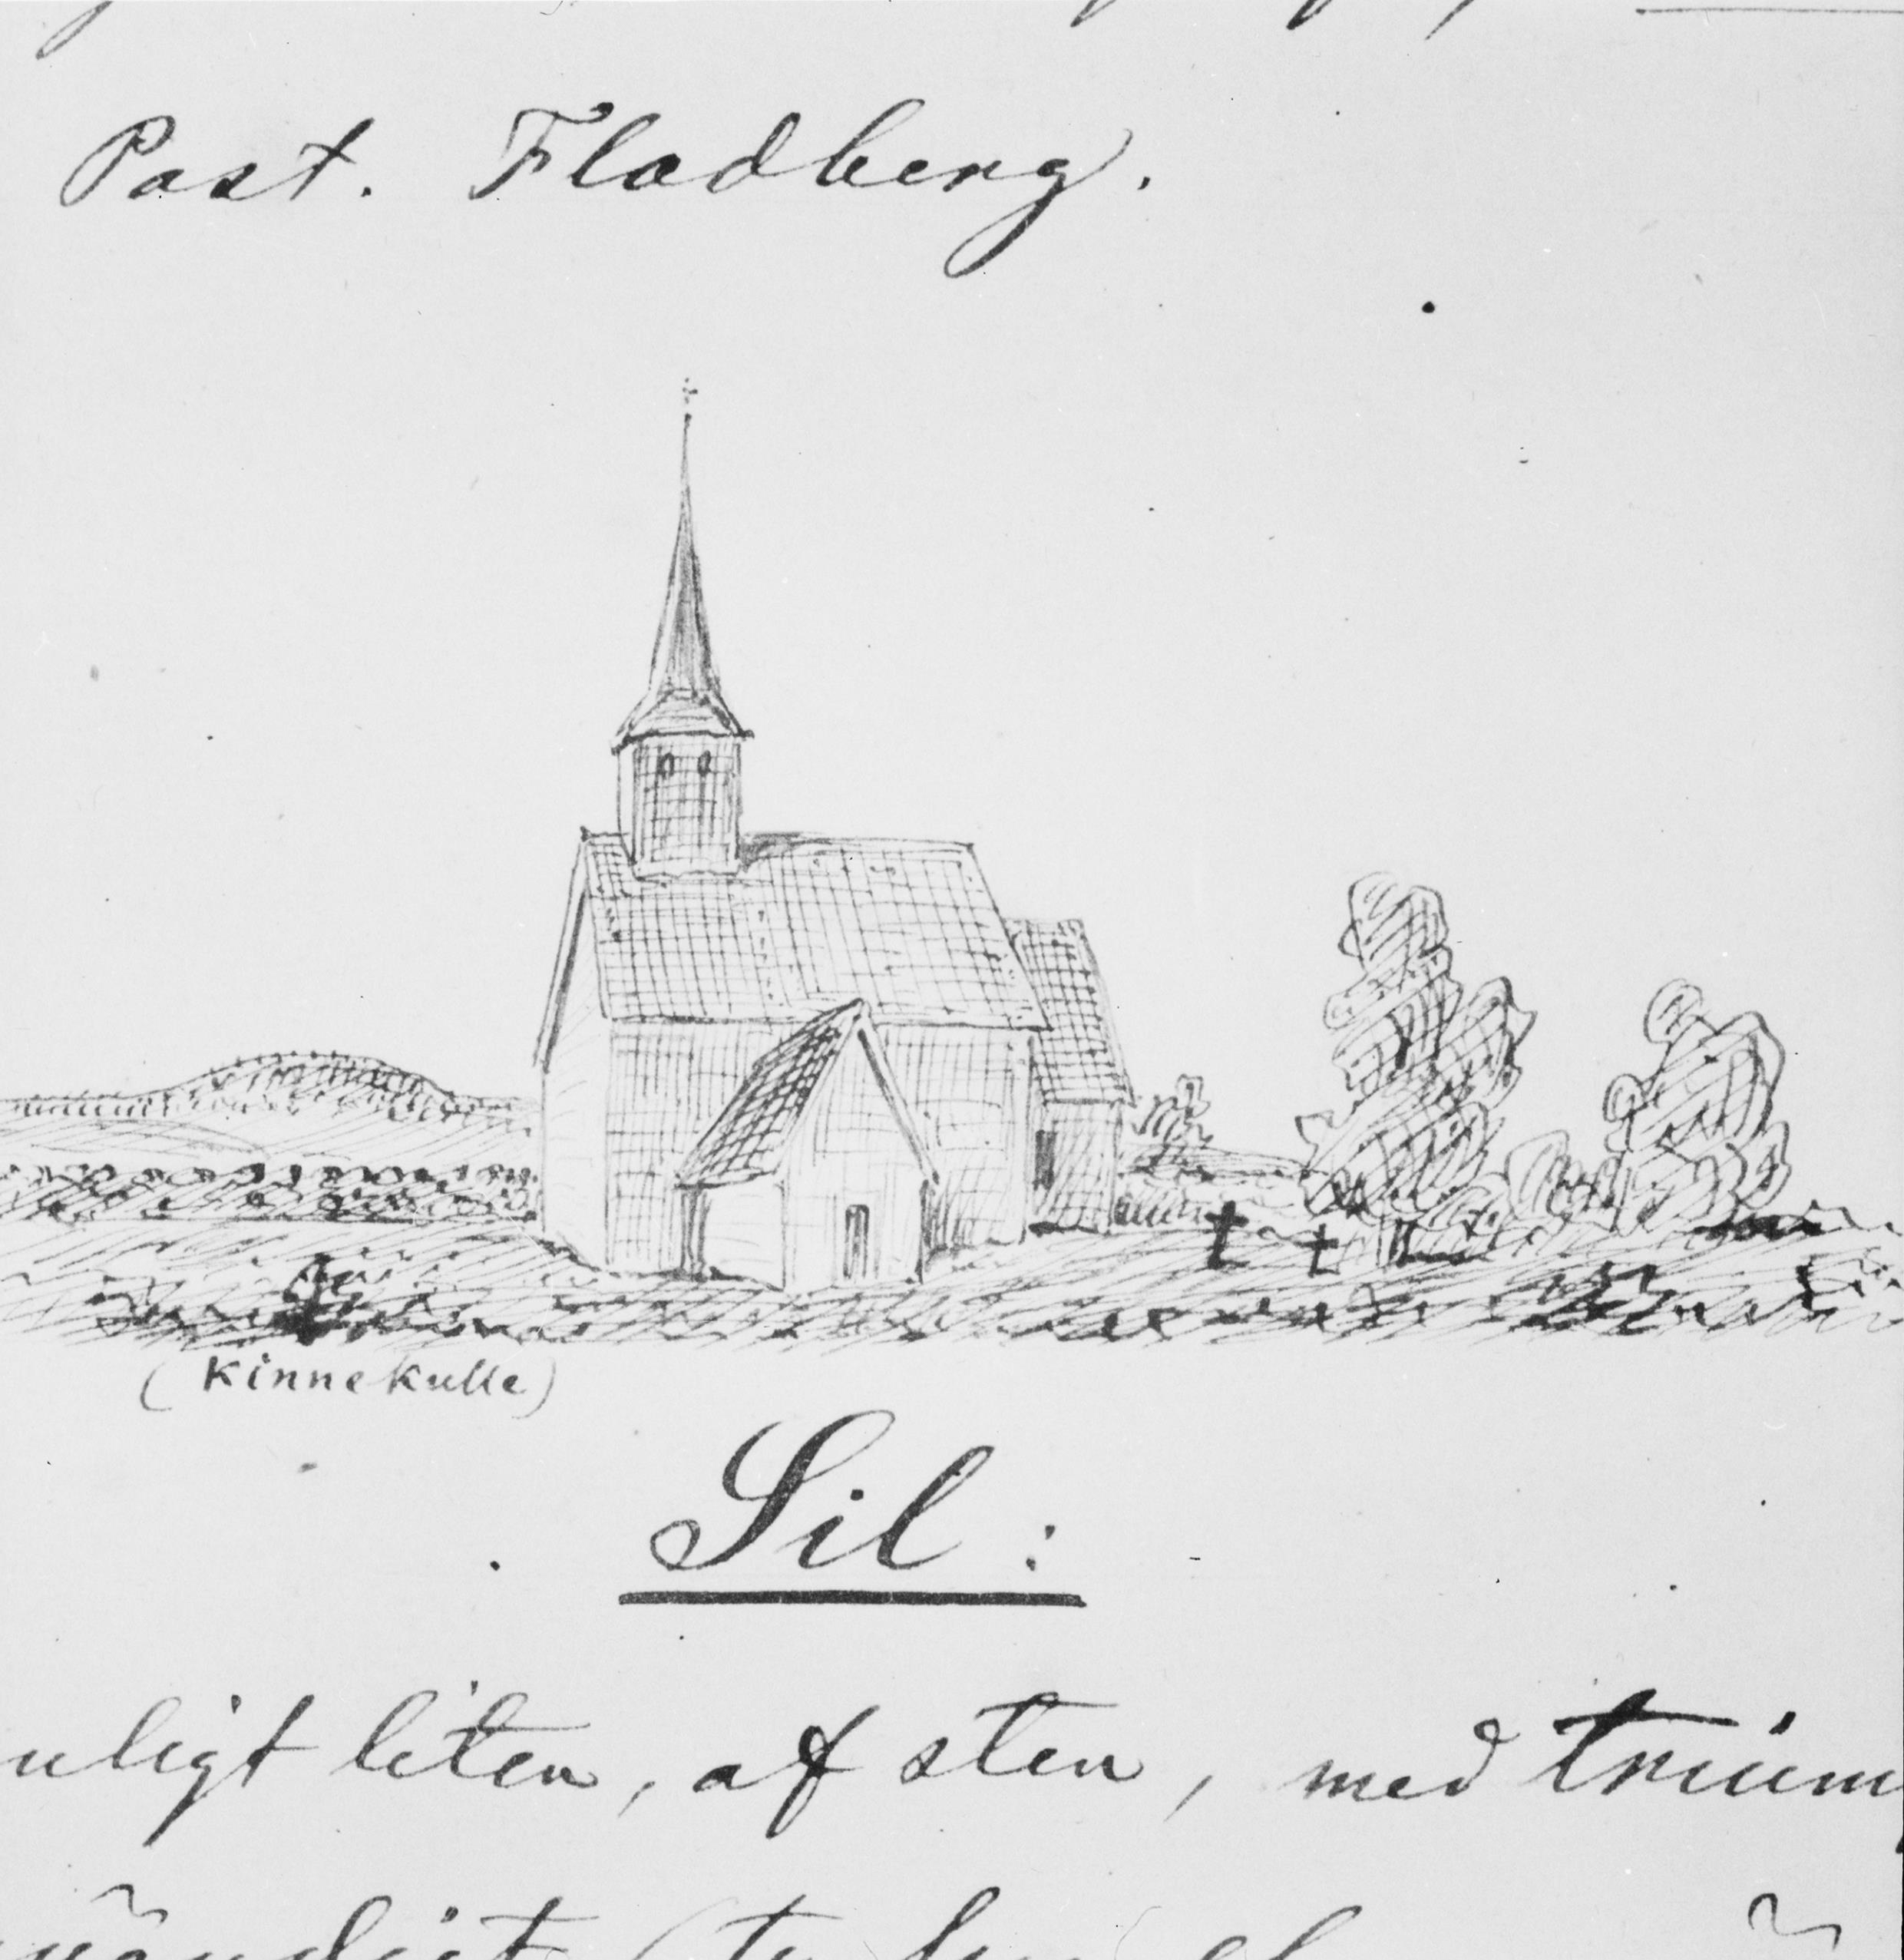 Past. Fladberg.
(Kinnekulle)
Sil:
nligt liten, af sten, med trium